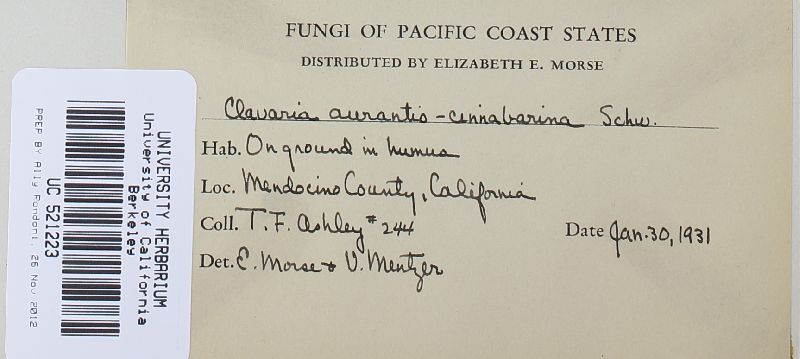 FUNGI OF PACIFIC COAST STATES
DISTRIBUTED BY ELIZABETH E. MORSE
Clavaria aurantio-cinnabarina Schw.
Hab. On ground in humus
Loc. Mendocino County, California
Coll. T. F. Ashley #244
Date Jan. 30, 1931
Det. E. Morse + V. Mentzer
UNIVERSITY HERBARIUM
University of California
Berkeley
UC 521223
PREP BY Ally Rondoni, 26 Nov 2012